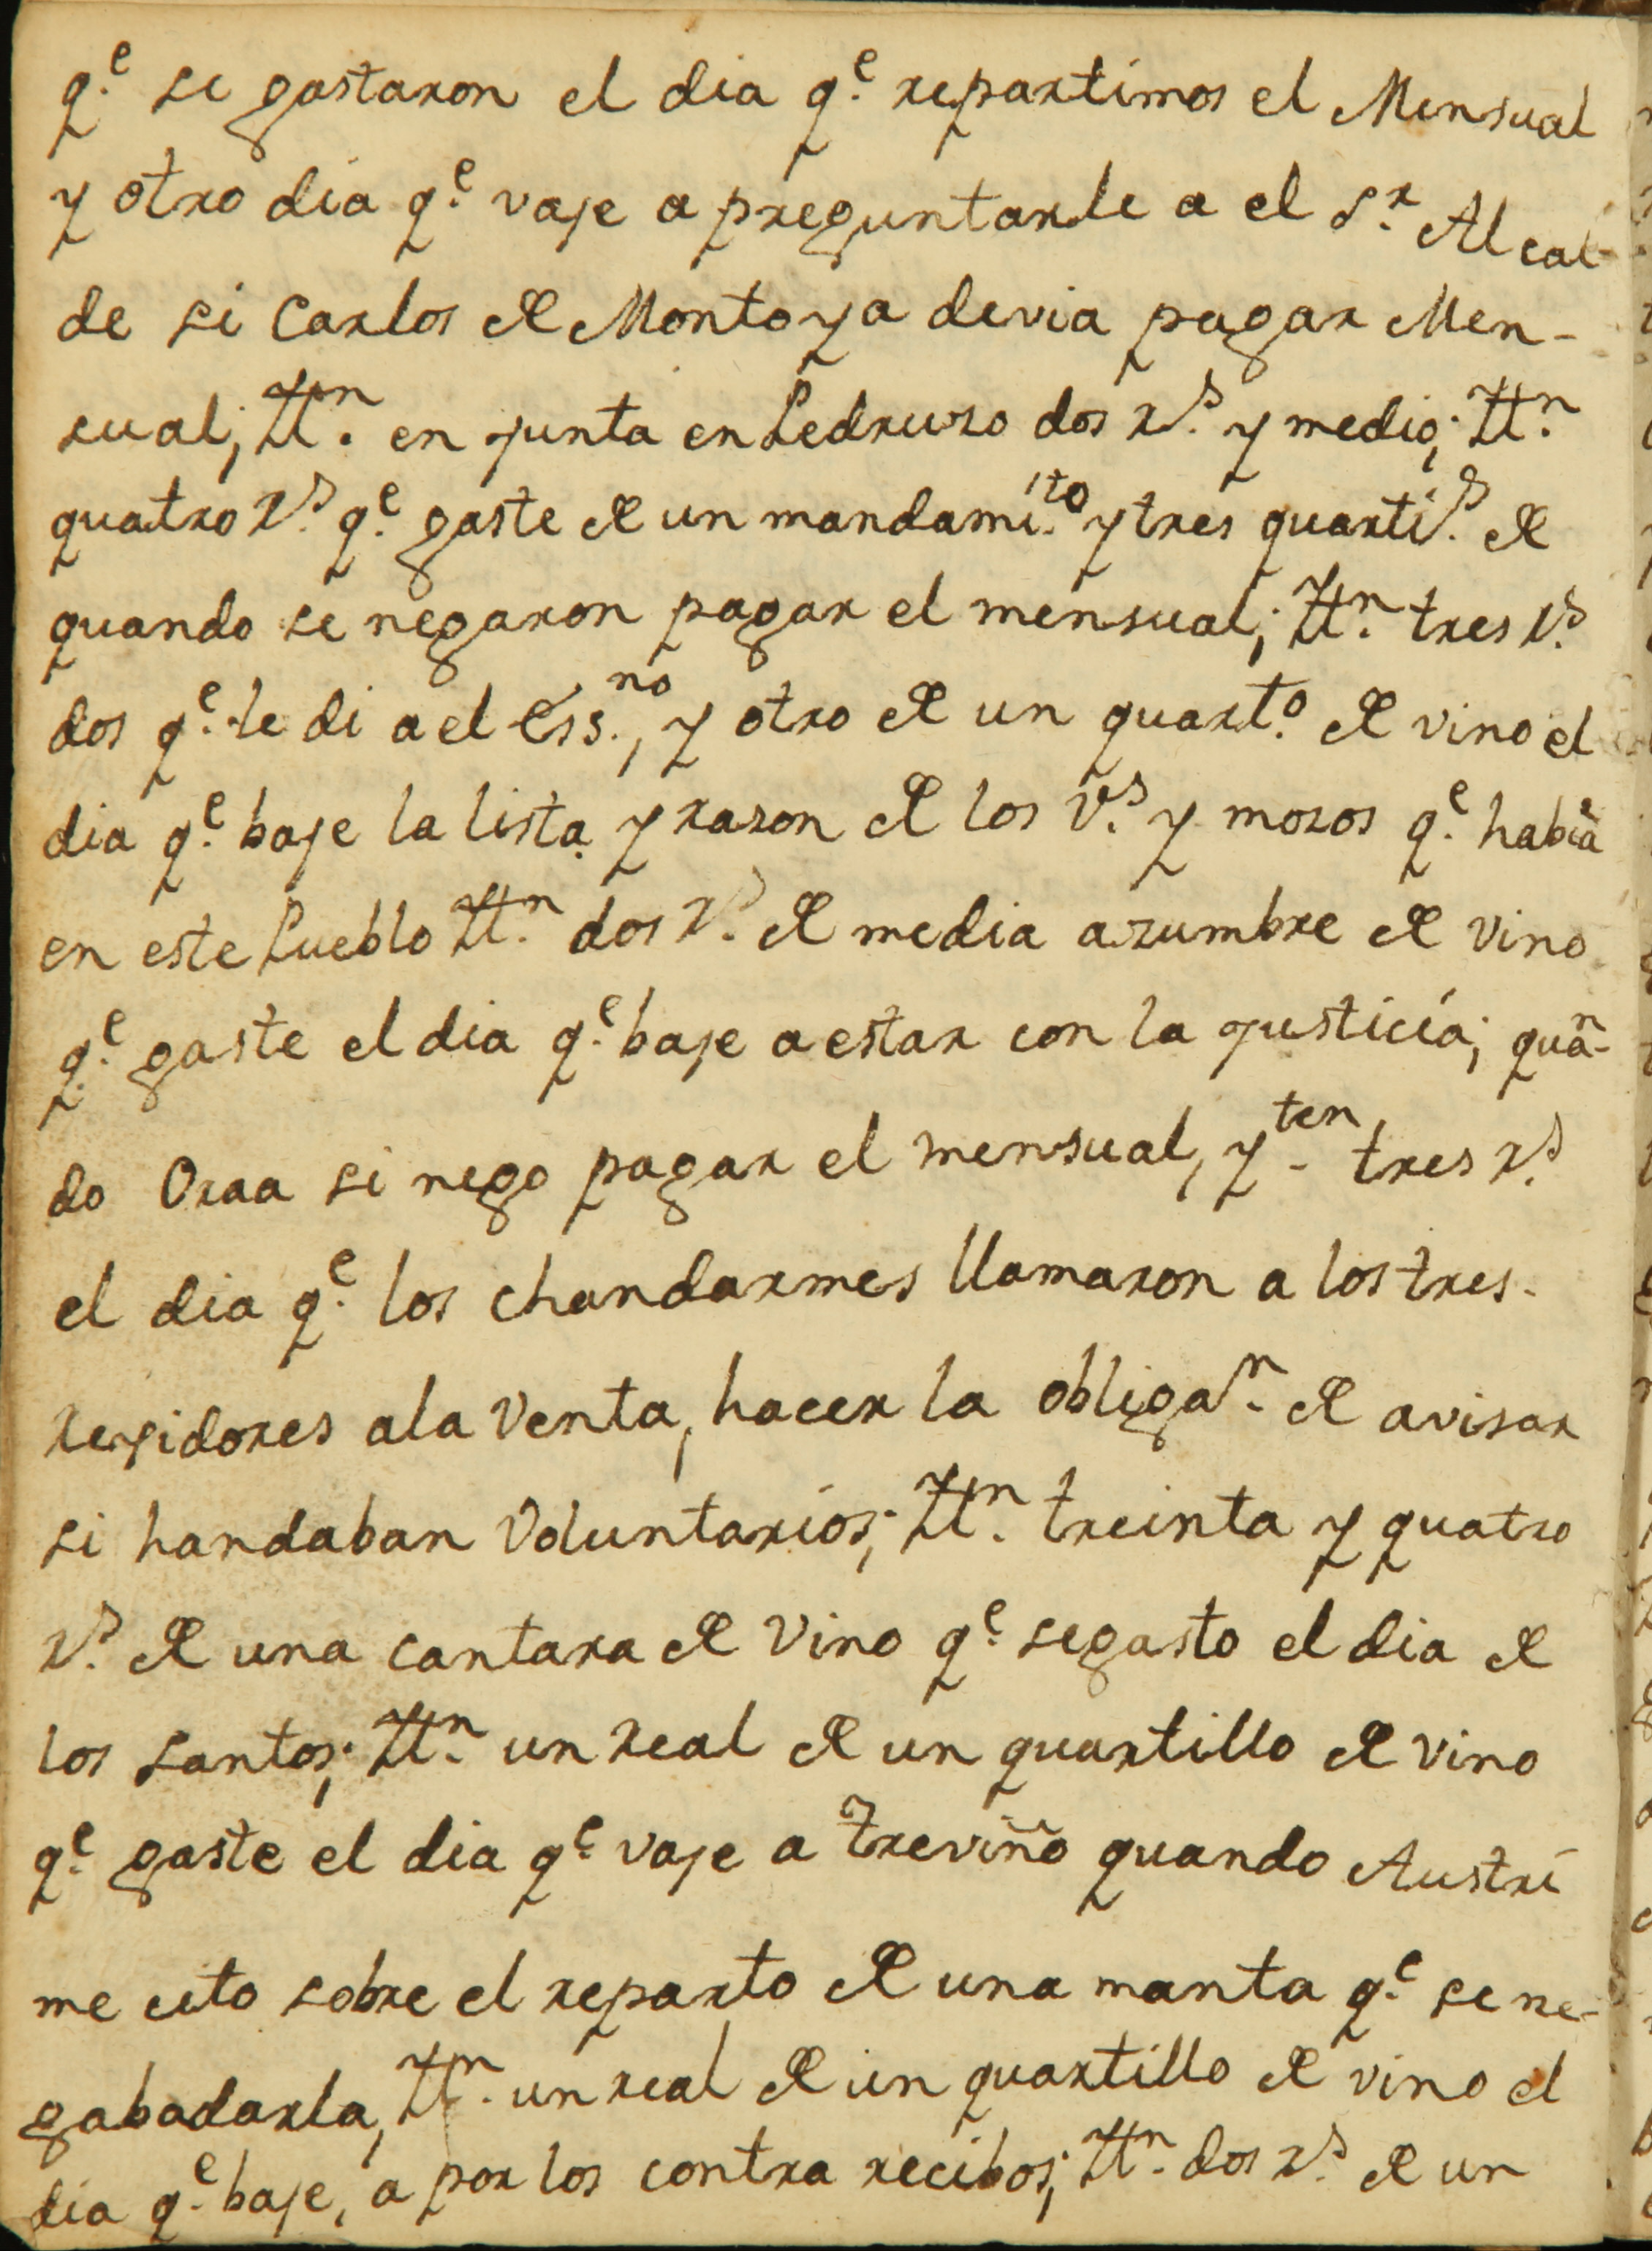 q.e se gastaron el dia q.e repartimos el Mensual
y otro dia q.e vaje a preguntarle a el S.r Alcal-
de si Carlos de Montoya devia pagar Men-
sual; Itt.n en junta en Pedruzo dos r.s y medio; Itt.n
quatro r.s q.e gaste de un mandami.to y tres quarti.s de
quando se negaron pagar el mensual; Itt.n tres r.s
dos q.e le di a el Ess.no, y otro de un quart.o de vino el
dia q.e baje la lista y razon de los v.s y mozos q.e habia
en este Pueblo Itt.n dos r.s de media azumbre de vino
q.e gaste el dia q.e baje a estar con la justicia; quan-
do Oraa si nego pagar el mensual, y.ten tres r.s
el dia q.e los chandarmes llamaron a los tres
rejidores ala Venta, hacer la obliga.n de avisar
si handaban Voluntarios; Itt.n treinta y quatro
r.s de una cantara de vino q.e segasto el dia de
los Santos; Itt.n un real de un quartillo de vino
q.e gaste el dia q.e vaje a Treviño quando Austri
me cito sobre el reparto de una manta q.e se ne-
gabadarla, Itt.n un real de un quartillo de vino el
dia q.e baje, a por los contra recibos; Itt.n dos r.s de un